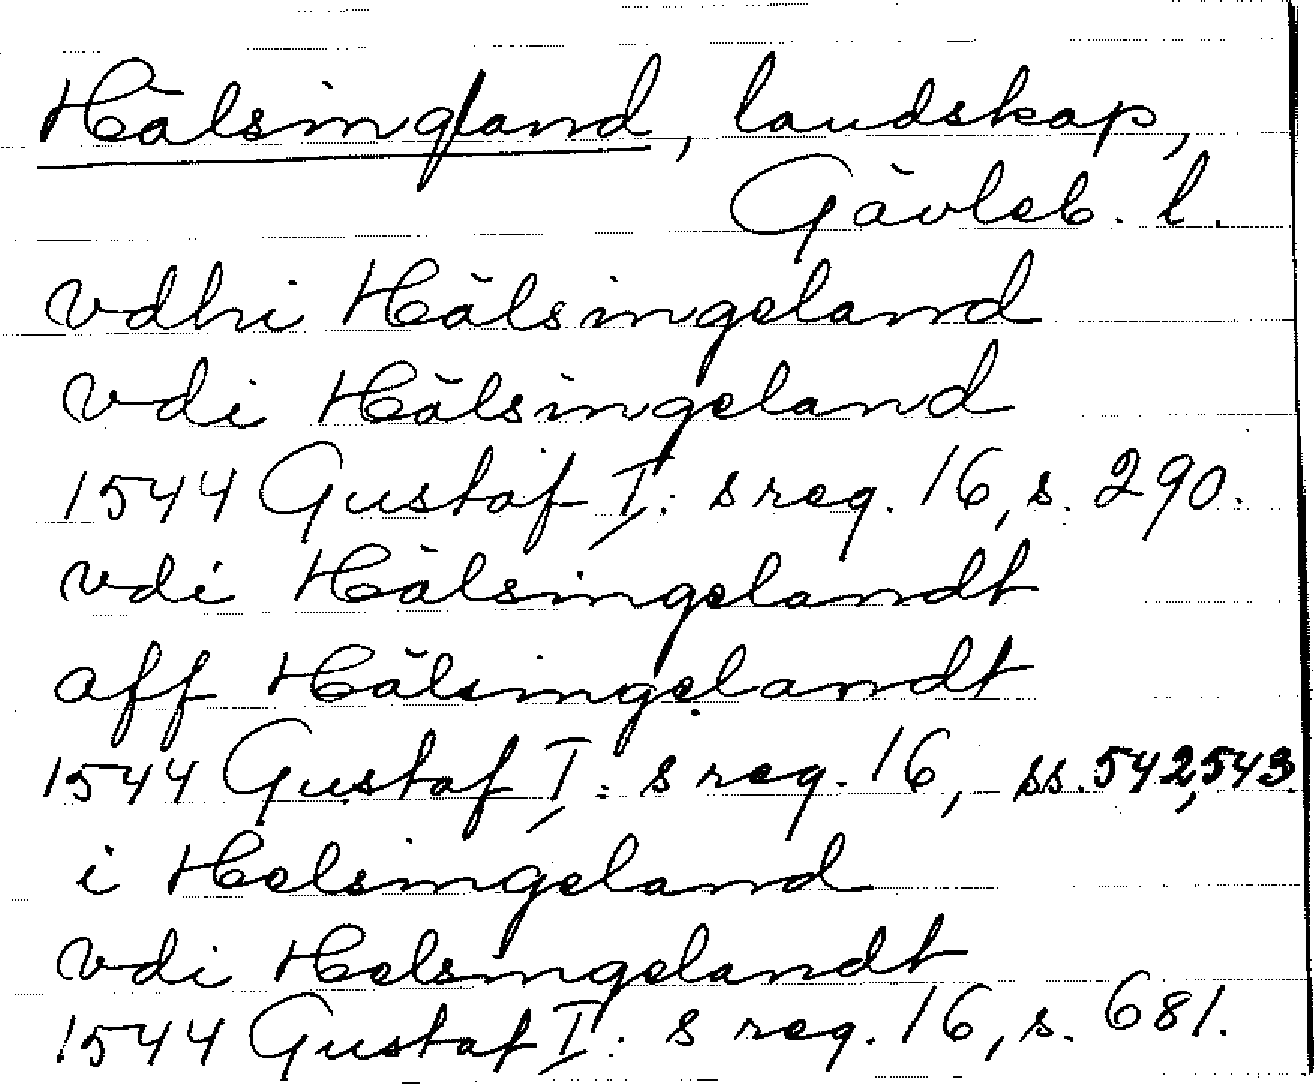 Hälsingland, landskap,
Gävleb. l.
vdhi Hälsingeland
vdi Hälsingeland
1544 Gustaf I: s reg. 16, s. 290.
vdi Hälsingelandt
aff Hälsingelandt
1544 Gustaf I: s reg. 16, ss. 542, 543.
i Helsingeland
vdi Helsingelandt
1544 Gustaf I: s reg. 16, s. 681.